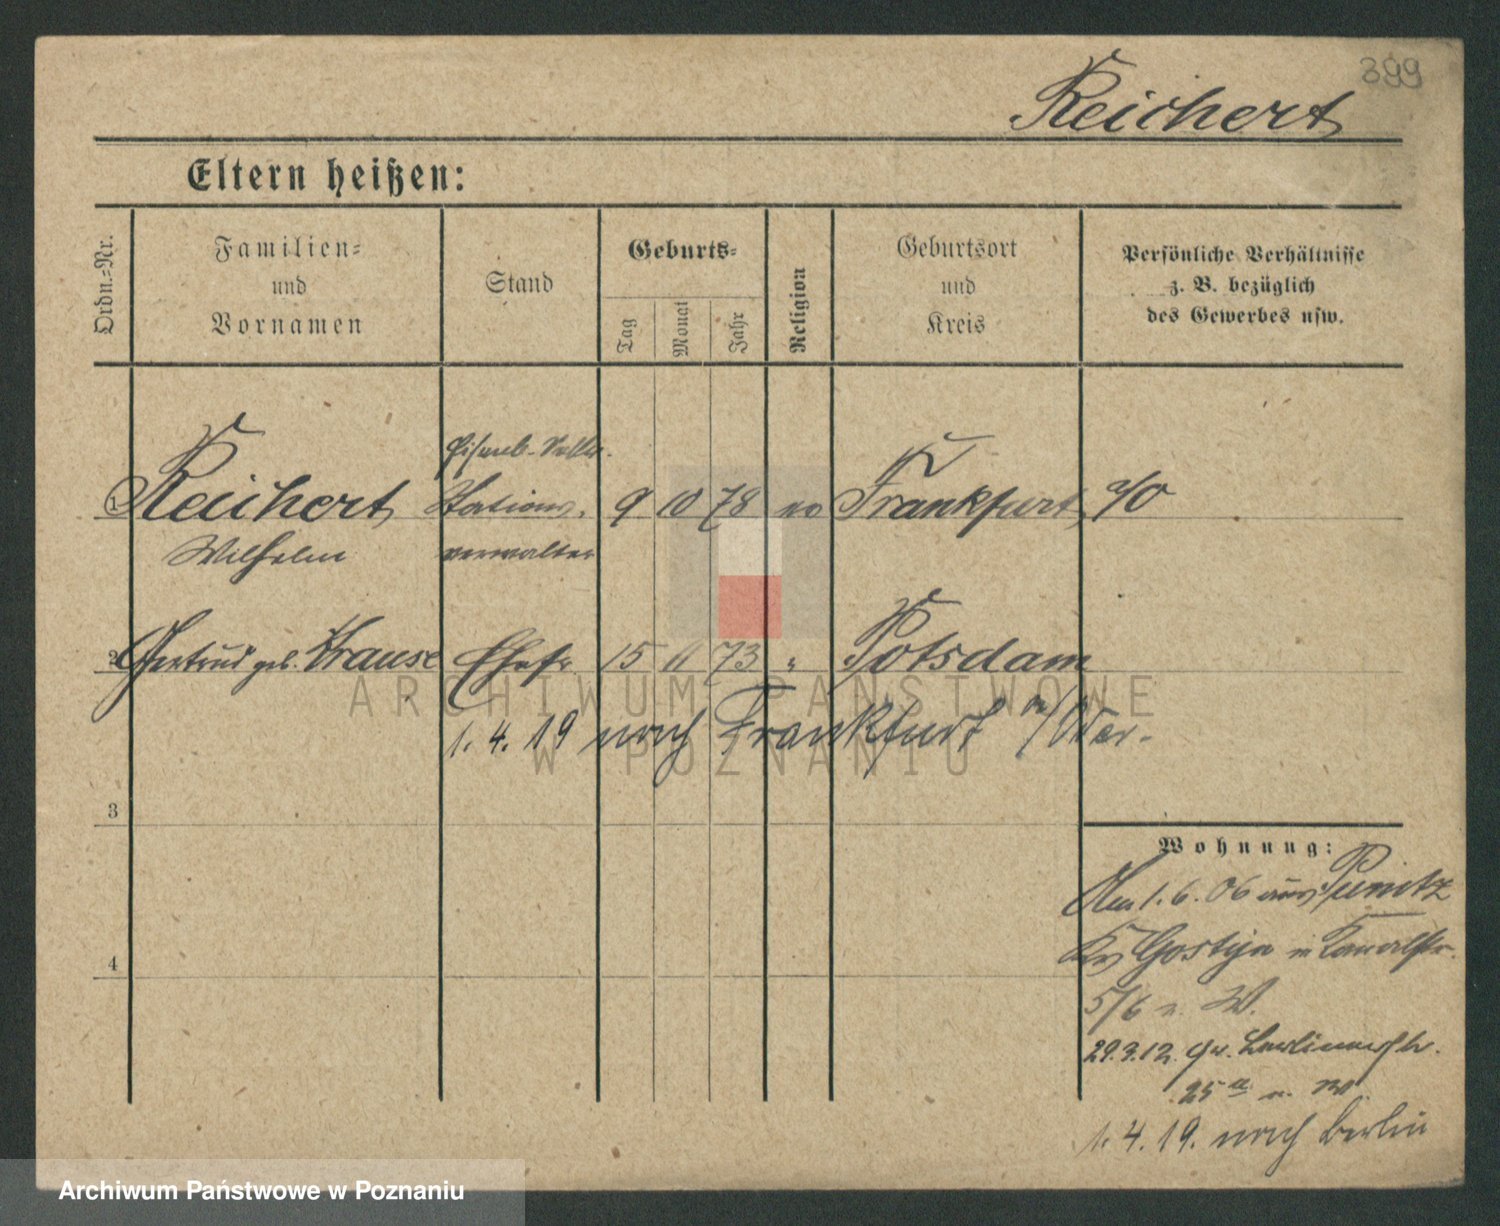 399
Reichert
Eltern heißen:
Ordn.=Nr.
Familien=
und
Vornamen
Stand
Geburts=
Tag
Monat
Jahr
Religion
Geburtsort
und
Kreis
Persönliche Verhältnisse
z. B. bezüglich
des Gewerbes usw.
Eisenb.
1 Reichert Stations. 9 10 78 ev Frankfurt a/O
Wilhelm verwalter
2 Gertrud geb. Krause Ehefr. 15 73 " Potsdam
1. 4. 19 nach Frankfurt a/Oder.
3
4
Wohnung:
Am 1. 6. 06 aus Punitz
Kr Gostyn in Kanalstr.
5/6 n. W.
29.3.12. Gr. Berlinerstr.
25 a n. W.
1. 4. 19. nach Berlin
ARCHIWUM PAŃSTWOWE
W POZNANIU
Archiwum Państwowe w Poznaniu